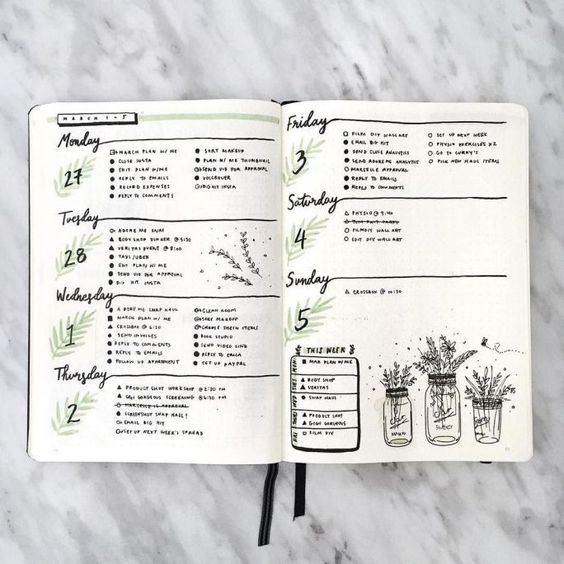 MARCH 1-5
Monday
27
MARCH PLAN W/ ME
CLOSE INSTA
EDIT PLAN W/ME
REPLY TO EMAILS
RECORD EXPENSES
REPLY TO COMMENTS
SORT MAKEUP
PLAN W/ ME THUMBNAIL
SEND VID FOR APPROVAL
VOICEOVER
INSTA
Tuesday
28
ADORE ME
BODY SHOP DINNER @ 5:30
VERITAS EVENT @ 7:00
EDIT PLAN W/ ME
SEND VID FOR APPROVAL
BIG KIT INSTA
Wednesday
1
ADORE ME SNAP HAUL
MARCH PLAN W/ ME
CROSSBOX @ 6:30
SEND INVOICES
REPLY TO COMMENTS
REPLY TO EMAILS
FOLLOW UP APARTMENT
CLEAN ROOM
MAKEUP
CHOOSE
BOOK STUDIO
SEND VIDEO LINK
REPLY TO
SET UP PAYPAL
Thursday
2
PRODUCT SHOT WORKSHOP @ 2:30 PM
GIGI GORGEOUS SCREENING @ 6:30
SCREENSHOT SNAP HAUL!
EMAIL BIG KIT
SET UP NEXT WEEK'S SPREAD
Friday
3
FILM DIY WALL ART
EMAIL BIG KIT
SEND CLUSE ANALYTICS
SEND ADOREME ANALYTICS
MARCELLE APPROVAL
REPLY TO EMAILS
REPLY TO COMMENTS
SET UP NEXT WEEK
PHYSIO EXERCISES X2
GO TO CURRY'S
PICK NEW HAUL ITEMS
Saturday
4
PHYSIO @ 9:40
FILM DIY WALL ART
EDIT DIY WALL ART
Sunday
5
CROSSBOX @ 10:30
THIS WEEK
MAR PLAN W/ME
BODY SHOP
VERITAS
SNAP HAUL
PRODUCT SHOT
GIGI GORGEOUS
FILM DIY